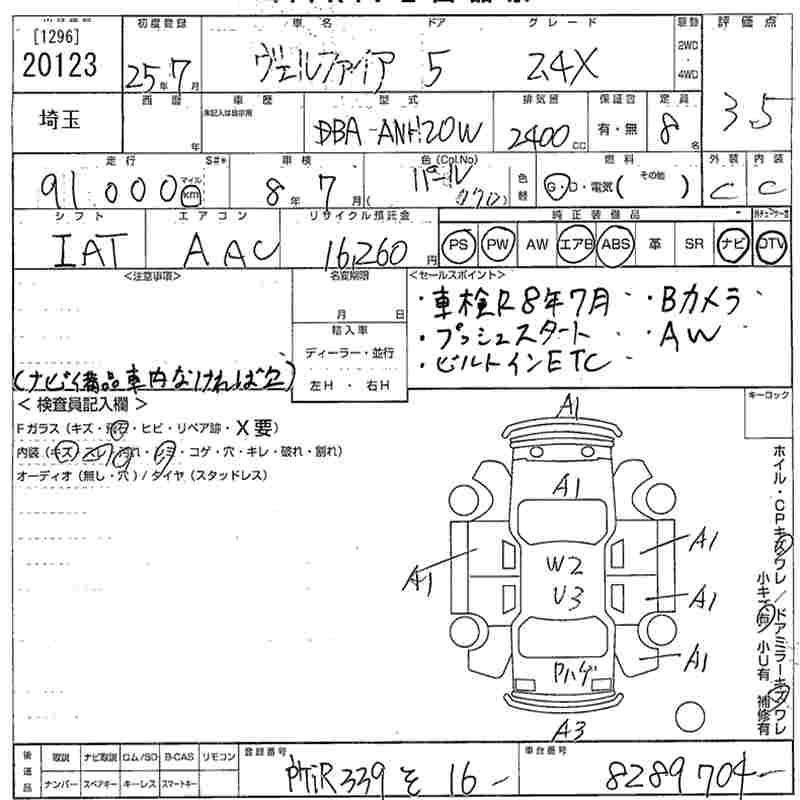 [1296]
20123
初度登録
25年7月
車名
ヴェルファイア
ドア
5
グレード
2.4X
駆動
2WD
4WD
評価点
3.5
埼玉
西暦
年
車歴
未記入は自家用
型式
DBA-ANH20W
排気量
2400CC
保証書
有・無
定員
8名
走行
91,000
マイル
km
S#*
車検
8年7月
色(Col.No)
パール
(070)
色替
燃料
G・D・電気( その他 )
外装
C
内装
C
シフト
IAT
エアコン
AAC
リサイクル預託金
16,260円
純正装備品
社外チューナー含
PS PW AW エアB ABS 革 SR ナビ DTV
<注意事項>
(ナビ備品車内なければ欠)
名変期限
月 日
輸入車
ディーラー・並行
左H・右H
<セールスポイント>
・車検R8年7月 ・Bカメラ
・プッシュスタート ・AW
・ビルトインETC
<検査員記入欄>
Fガラス(キズ・飛石・ヒビ・リペア跡・X要)
内装(キズ・スレ・汚れ・シミ・コゲ・穴・キレ・破れ・割れ)
オーディオ(無し・穴)/タイヤ(スタッドレス)
キーロック
A1
A1
A1
A1
W2
U3
A1
A1
Pハゲ
A3
ホイル・CPキズワレ/ドアミラーキズワレ
小キズ有 小U有 補修有
後送品
取説 ナビ取説 ロム/SD B-CAS リモコン
ナンバー スペアキー キーレス スマートキー
登録番号
339 そ 16-
車台番号
8289704-